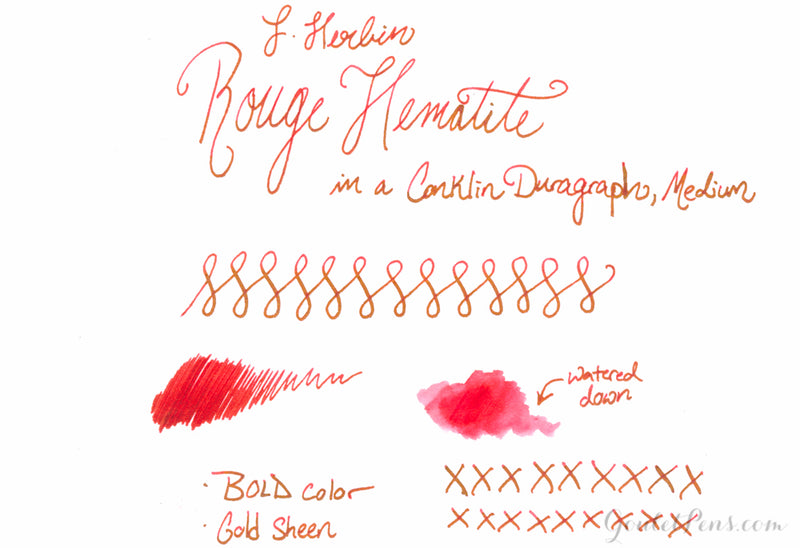 J. Herbin
Rouge Hematite
in a Conklin Duragraph, Medium
watered
down
· BOLD color
· Gold Sheen
XXXXXXXXXX
XXXXXXXXXX
GouletPens.com